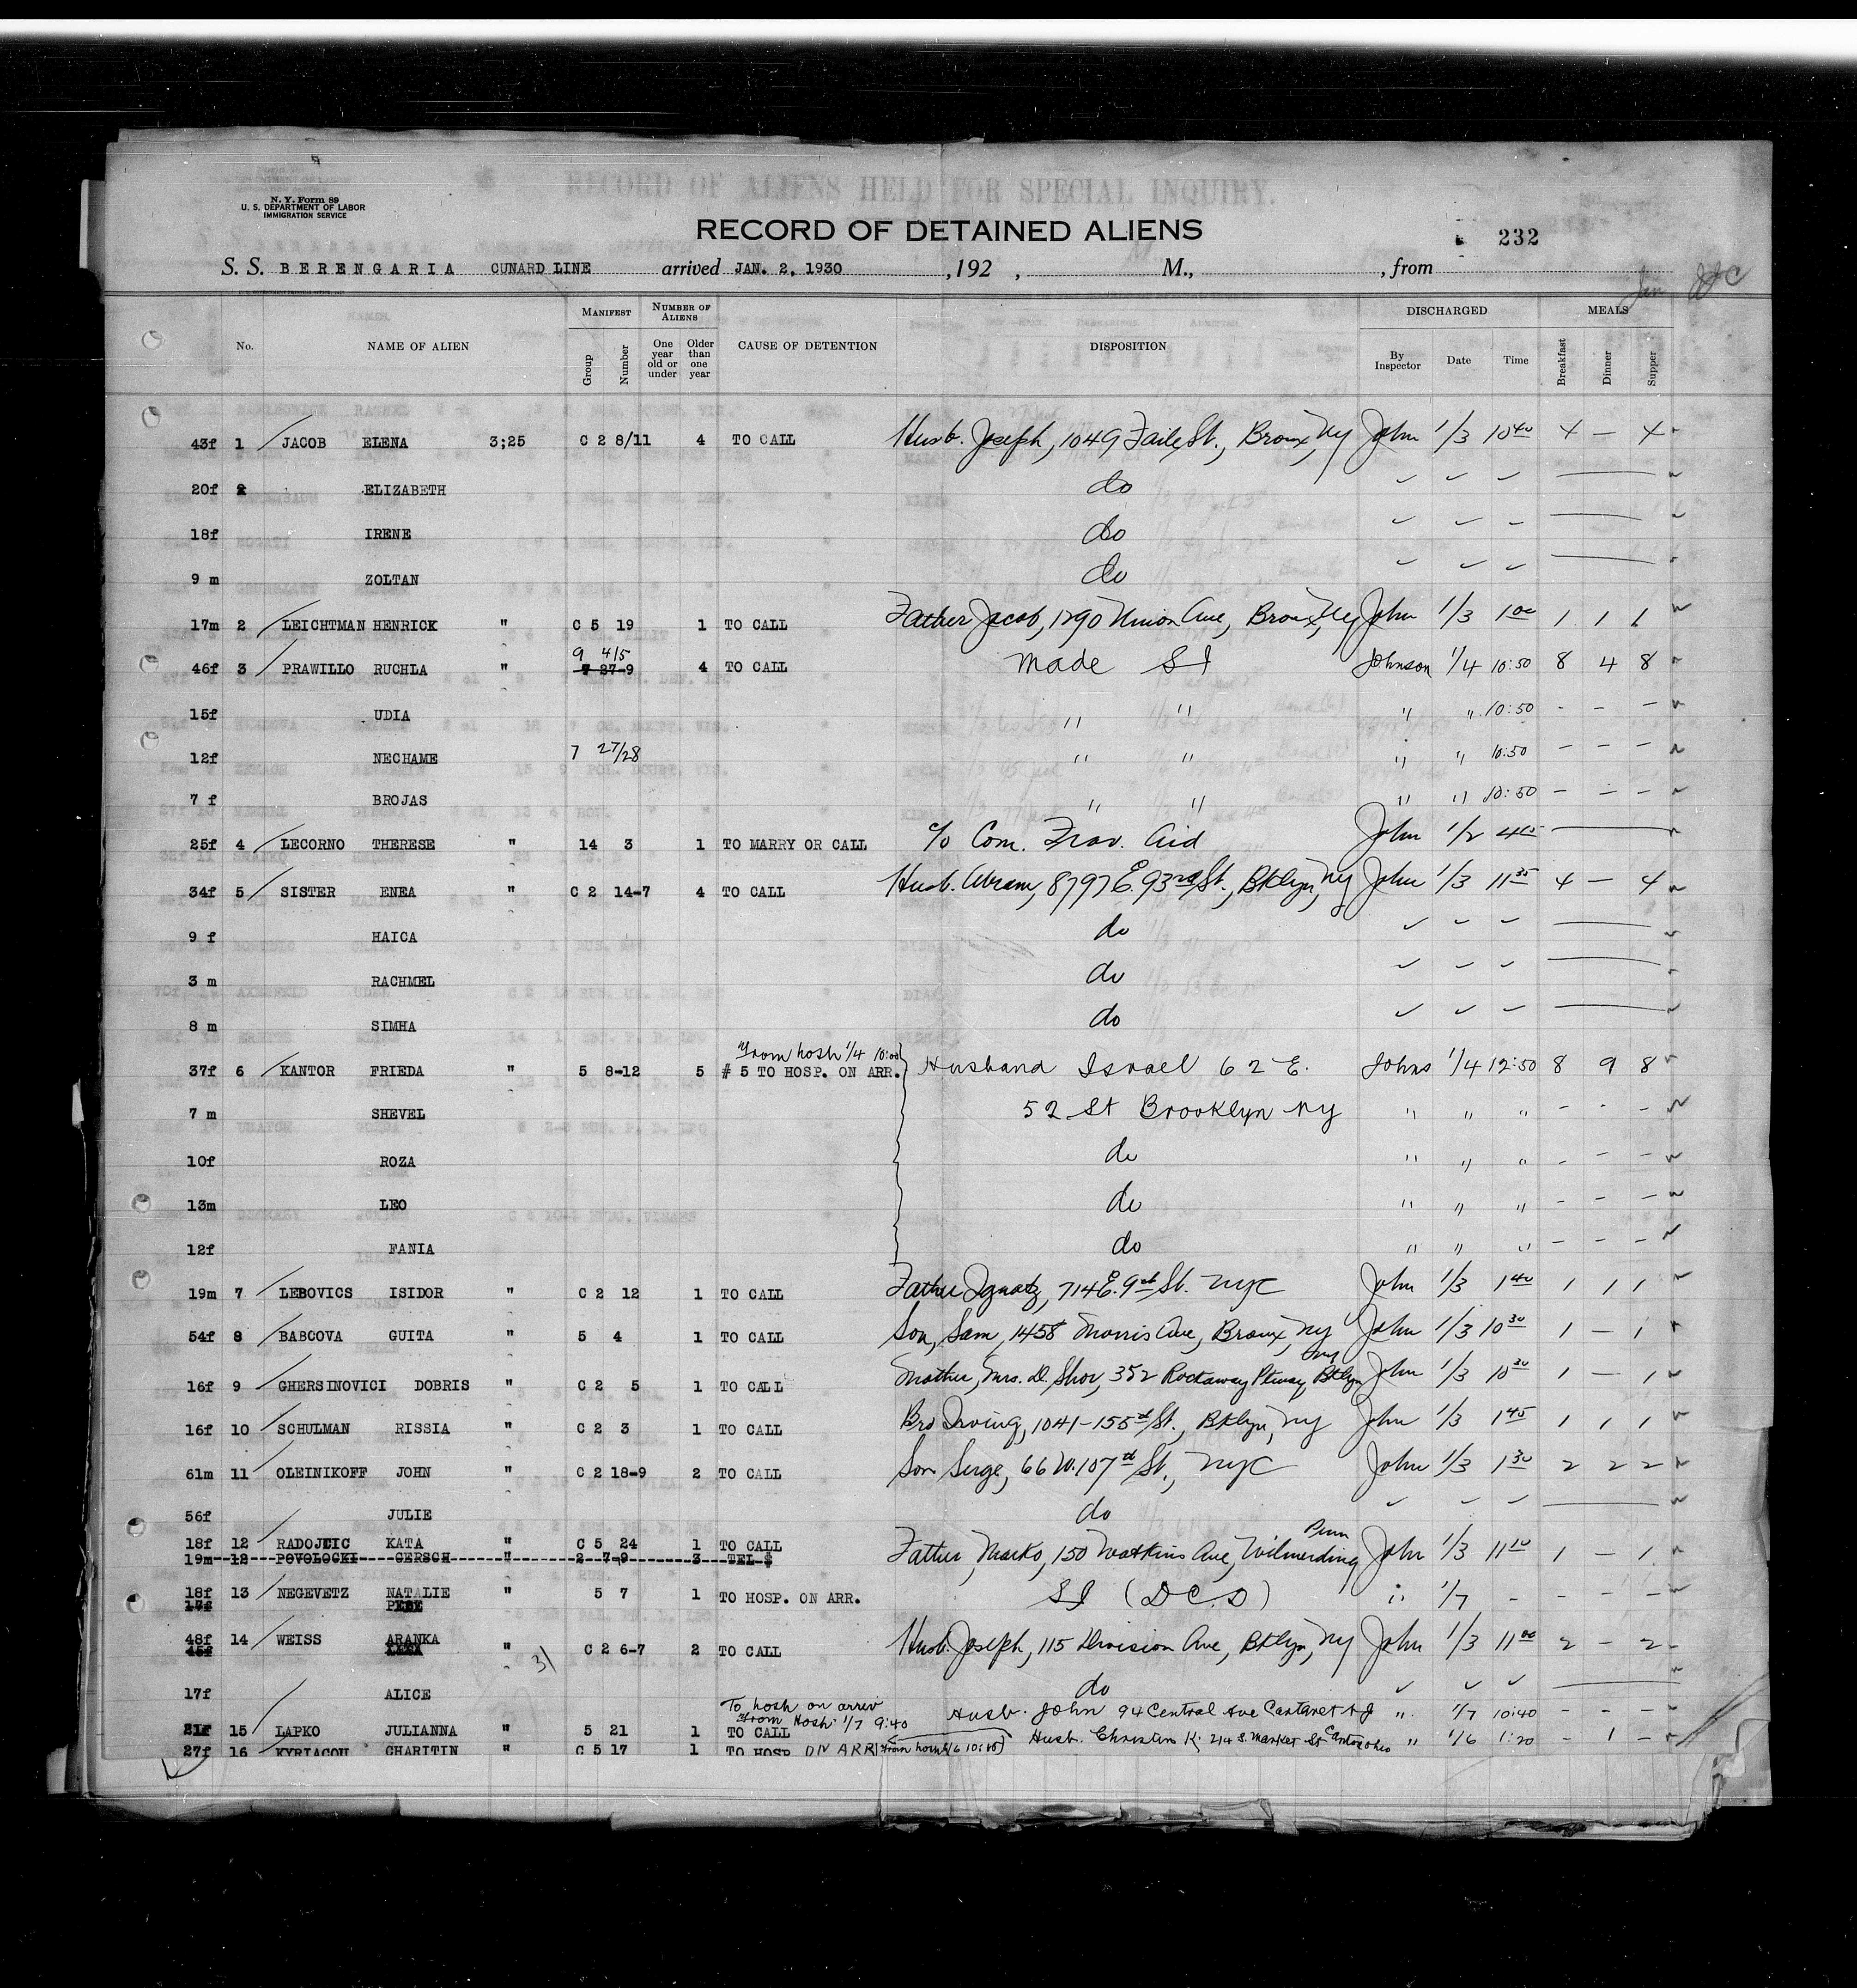 N. Y. Form 89
U. S. DEPARTMENT OF LABOR
IMMIGRATION SERVICE
RECORD OF ALIENS HELD FOR SPECIAL INQUIRY.
RECORD OF DETAINED ALIENS
232
S. S. BERENGARIA CUNARD LINE arrived JAN. 2, 1930 , 192 , M., , from
No. NAME OF ALIEN MANIFEST Group Number NUMBER OF ALIENS One year old or under Older than one year CAUSE OF DETENTION DISPOSITION DISCHARGED By Inspector Date Time MEALS Breakfast Dinner Supper
43f 1 JACOB ELENA 3;25 C 2 8/11 4 TO CALL Husb. Joseph, 1049 Faile St., Bronx, NY John 1/3 10 40 4 — 4
20f 2 ELIZABETH do
18f IRENE do
9 m ZOLTAN do
17m 2 LEICHTMAN HENRICK " C 5 19 1 TO CALL Father Jacob, 1290 Union Ave, Bronx, NY John 1/3 1 00 1 1 1
9 4/5
46f 3 PRAWILLO RUCHLA " 7 27-9 4 TO CALL made SI Johnson 1/4 10:50 8 4 8
15f UDIA " " " " 10:50 - - -
12f NECHAME 7 27/28 " " " " 10:50 - - -
7 f BROJAS " " " " 10:50 - - -
25f 4 LECORNO THERESE " 14 3 1 TO MARRY OR CALL c/o Com. Trav. Aid John 1/2 4 05
34f 5 SISTER ENEA " C 2 14-7 4 TO CALL Husb. Abram, 8797 E. 93rd St., Bklyn, NY John 1/3 11 35 4 — 4
9 f HAICA do
3 m RACHMEL do
8 m SIMHA do
From hosh 1/4 10:00
37f 6 KANTOR FRIEDA " 5 8-12 5 # 5 TO HOSP. ON ARR. Husband Israel 62 E. Johns 1/4 12:50 8 9 8
7 m SHEVEL 52 St Brooklyn NY " " " - - -
10f ROZA do " " " - - -
13m LEO do " " " - - -
12f FANIA do " " " - - -
19m 7 LEBOVICS ISIDOR " C 2 12 1 TO CALL Father Ignatz, 714 E. 9th St. NYC John 1/3 1 40 1 1 1
54f 8 BABCOVA GUITA " 5 4 1 TO CALL Son, Sam, 1458 Morris Ave, Bronx, NY John 1/3 10 30 1 — 1
16f 9 GHERSINOVICI DOBRIS " C 2 5 1 TO CALL Mother, Mrs. D. Shor, 352 Rockaway Pkway, Bklyn NY John 1/3 10 30 1 — 1
16f 10 SCHULMAN RISSIA " C 2 3 1 TO CALL Bro Irving, 1041-155th St., Bklyn, NY John 1/3 1 45 1 1 1
61m 11 OLEINIKOFF JOHN " C 2 18-9 2 TO CALL Son Serge, 66 W. 107th St., NYC John 1/3 1 30 2 2 2
56f JULIE do
18f 12 RADOJCIC KATA " C 5 24 1 TO CALL Father, Marko, 150 Watkins Ave, Wilmerding Penn John 1/3 11 10 1 — 1
19m 12 POVOLOCKI GERSCH " 2 7-9 3 TEL $
18f 13 NEGEVETZ NATALIE " 5 7 1 TO HOSP. ON ARR. SI (D C. D) " 1/7 - - -
17f
48f 14 WEISS ARANKA " C 2 6-7 2 TO CALL Husb. Joseph, 115 Division Ave, Bklyn, NY John 1/3 11 00 2 — 2
45f
31
17f ALICE do
To hosh on arriv
From Hosh. 1/7 9:40
21f 15 LAPKO JULIANNA " 5 21 1 TO CALL Husb. John 94 Central Ave Cartaret NJ " 1/7 10:40 - - -
27f 16 KYRIACOU CHARITIN " C 5 17 1 TO HOSP ON ARR Husb. Christim K. 214 S. Market St Canton Ohio " 1/6 1:20 - 1 -